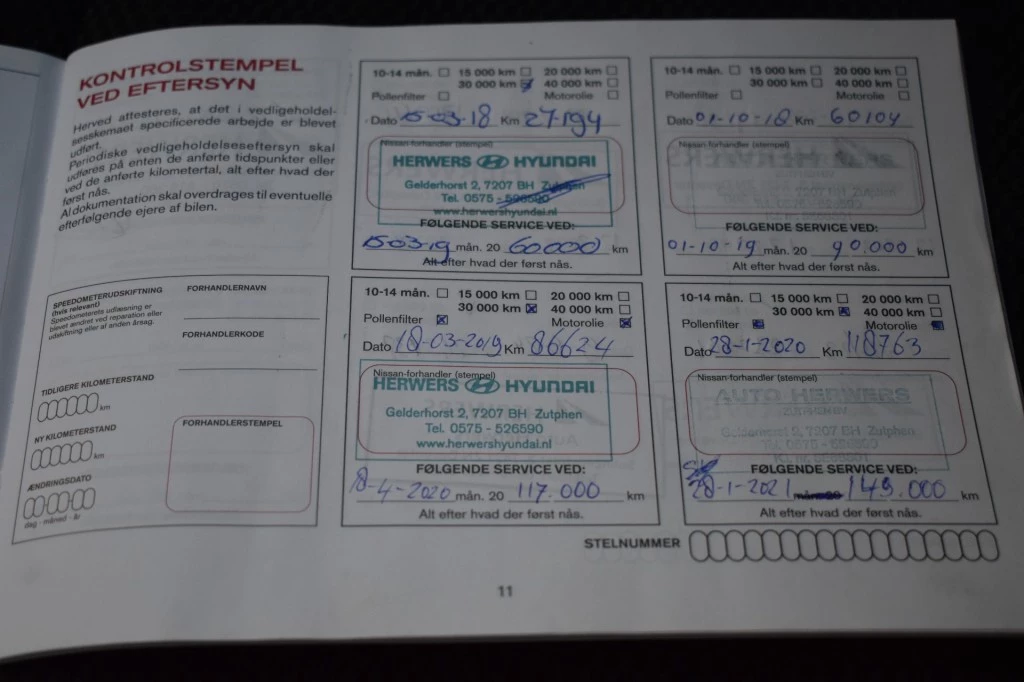 KONTROLSTEMPEL
VED EFTERSYN
Herved attesteres, at det i vedligeholdel-
sesskemaet specificerede arbejde er blevet
udført.
Periodiske vedligeholdelseseftersyn skal
udføres på enten de anførte tidspunkter eller
ved de anførte kilometertal, alt efter hvad der
først nås.
Al dokumentation skal overdrages til eventuelle
efterfølgende ejere af bilen.
SPEEDOMETERUDSKIFTNING
(hvis relevant)
Speedometerets udlæsning er
blevet ændret ved reparation eller
udskiftning eller af anden årsag.
FORHANDLERNAVN
FORHANDLERKODE
TIDLIGERE KILOMETERSTAND
km
NY KILOMETERSTAND
km
ÆNDRINGSDATO
dag - måned - år
FORHANDLERSTEMPEL
10-14 mån. 15 000 km 20 000 km
30 000 km 40 000 km
Pollenfilter Motorolie
Dato 15-03-18 Km 27194
Nissan-forhandler (stempel)
HERWERS HYUNDAI
Gelderhorst 2, 7207 BH Zutphen
Tel. 0575 - 526590
www.herwershyundai.nl
FØLGENDE SERVICE VED:
15-03-19 mån. 20 60000 km
Alt efter hvad der først nås.
10-14 mån. 15 000 km 20 000 km
30 000 km 40 000 km
Pollenfilter Motorolie
Dato 01-10-18 Km 60104
Nissan-forhandler (stempel)
FØLGENDE SERVICE VED:
01-10-19 mån. 20 90.000 km
Alt efter hvad der først nås.
10-14 mån. 15 000 km 20 000 km
30 000 km 40 000 km
Pollenfilter Motorolie
Dato 18-03-2019 Km 86624
Nissan-forhandler (stempel)
HERWERS HYUNDAI
Gelderhorst 2, 7207 BH Zutphen
Tel. 0575 - 526590
www.herwershyundai.nl
FØLGENDE SERVICE VED:
18-4-2020 mån. 20 117.000 km
Alt efter hvad der først nås.
10-14 mån. 15 000 km 20 000 km
30 000 km 40 000 km
Pollenfilter Motorolie
Dato 28-1-2020 Km 118763
Nissan-forhandler (stempel)
AUTO HERWERS
ZUTPHEN BV
Gelderhorst 2, 7207 BH Zutphen
Tel. 0575 - 526590
FØLGENDE SERVICE VED:
28-1-2021 mån. 20 149.000 km
Alt efter hvad der først nås.
STELNUMMER
11